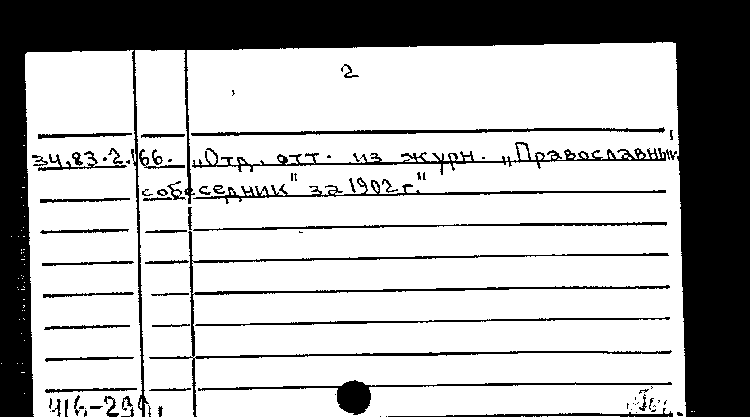 2
34.83.2.166. „Отд. отт. из журн. „Православный
собеседник" за 1902 г."